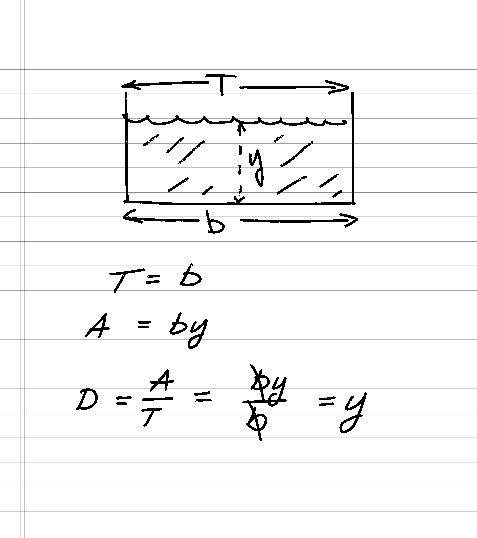 T
y
b
T = b
A = by
D = A/T = by/b = y